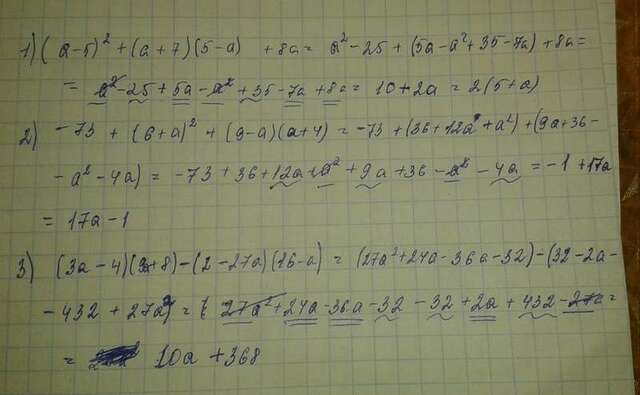 1) (a-5)² + (a+7)(5-a) + 8a = a² - 25 + (5a - a² + 35 - 7a) + 8a =
= a² - 25 + 5a - a² + 35 - 7a + 8a = 10 + 2a = 2(5+a)
2) -73 + (6+a)² + (9-a)(a+4) = -73 + (36 + 12a + a²) + (9a + 36 -
- a² - 4a) = -73 + 36 + 12a + a² + 9a + 36 - a² - 4a = -1 + 17a
= 17a - 1
3) (3a-4)(9a+8) - (2-27a)(16-a) = (27a² + 24a - 36a - 32) - (32 - 2a -
- 432 + 27a²) = ( 27a² + 24a - 36a - 32 - 32 + 2a + 432 - 27a =
= 10a + 368